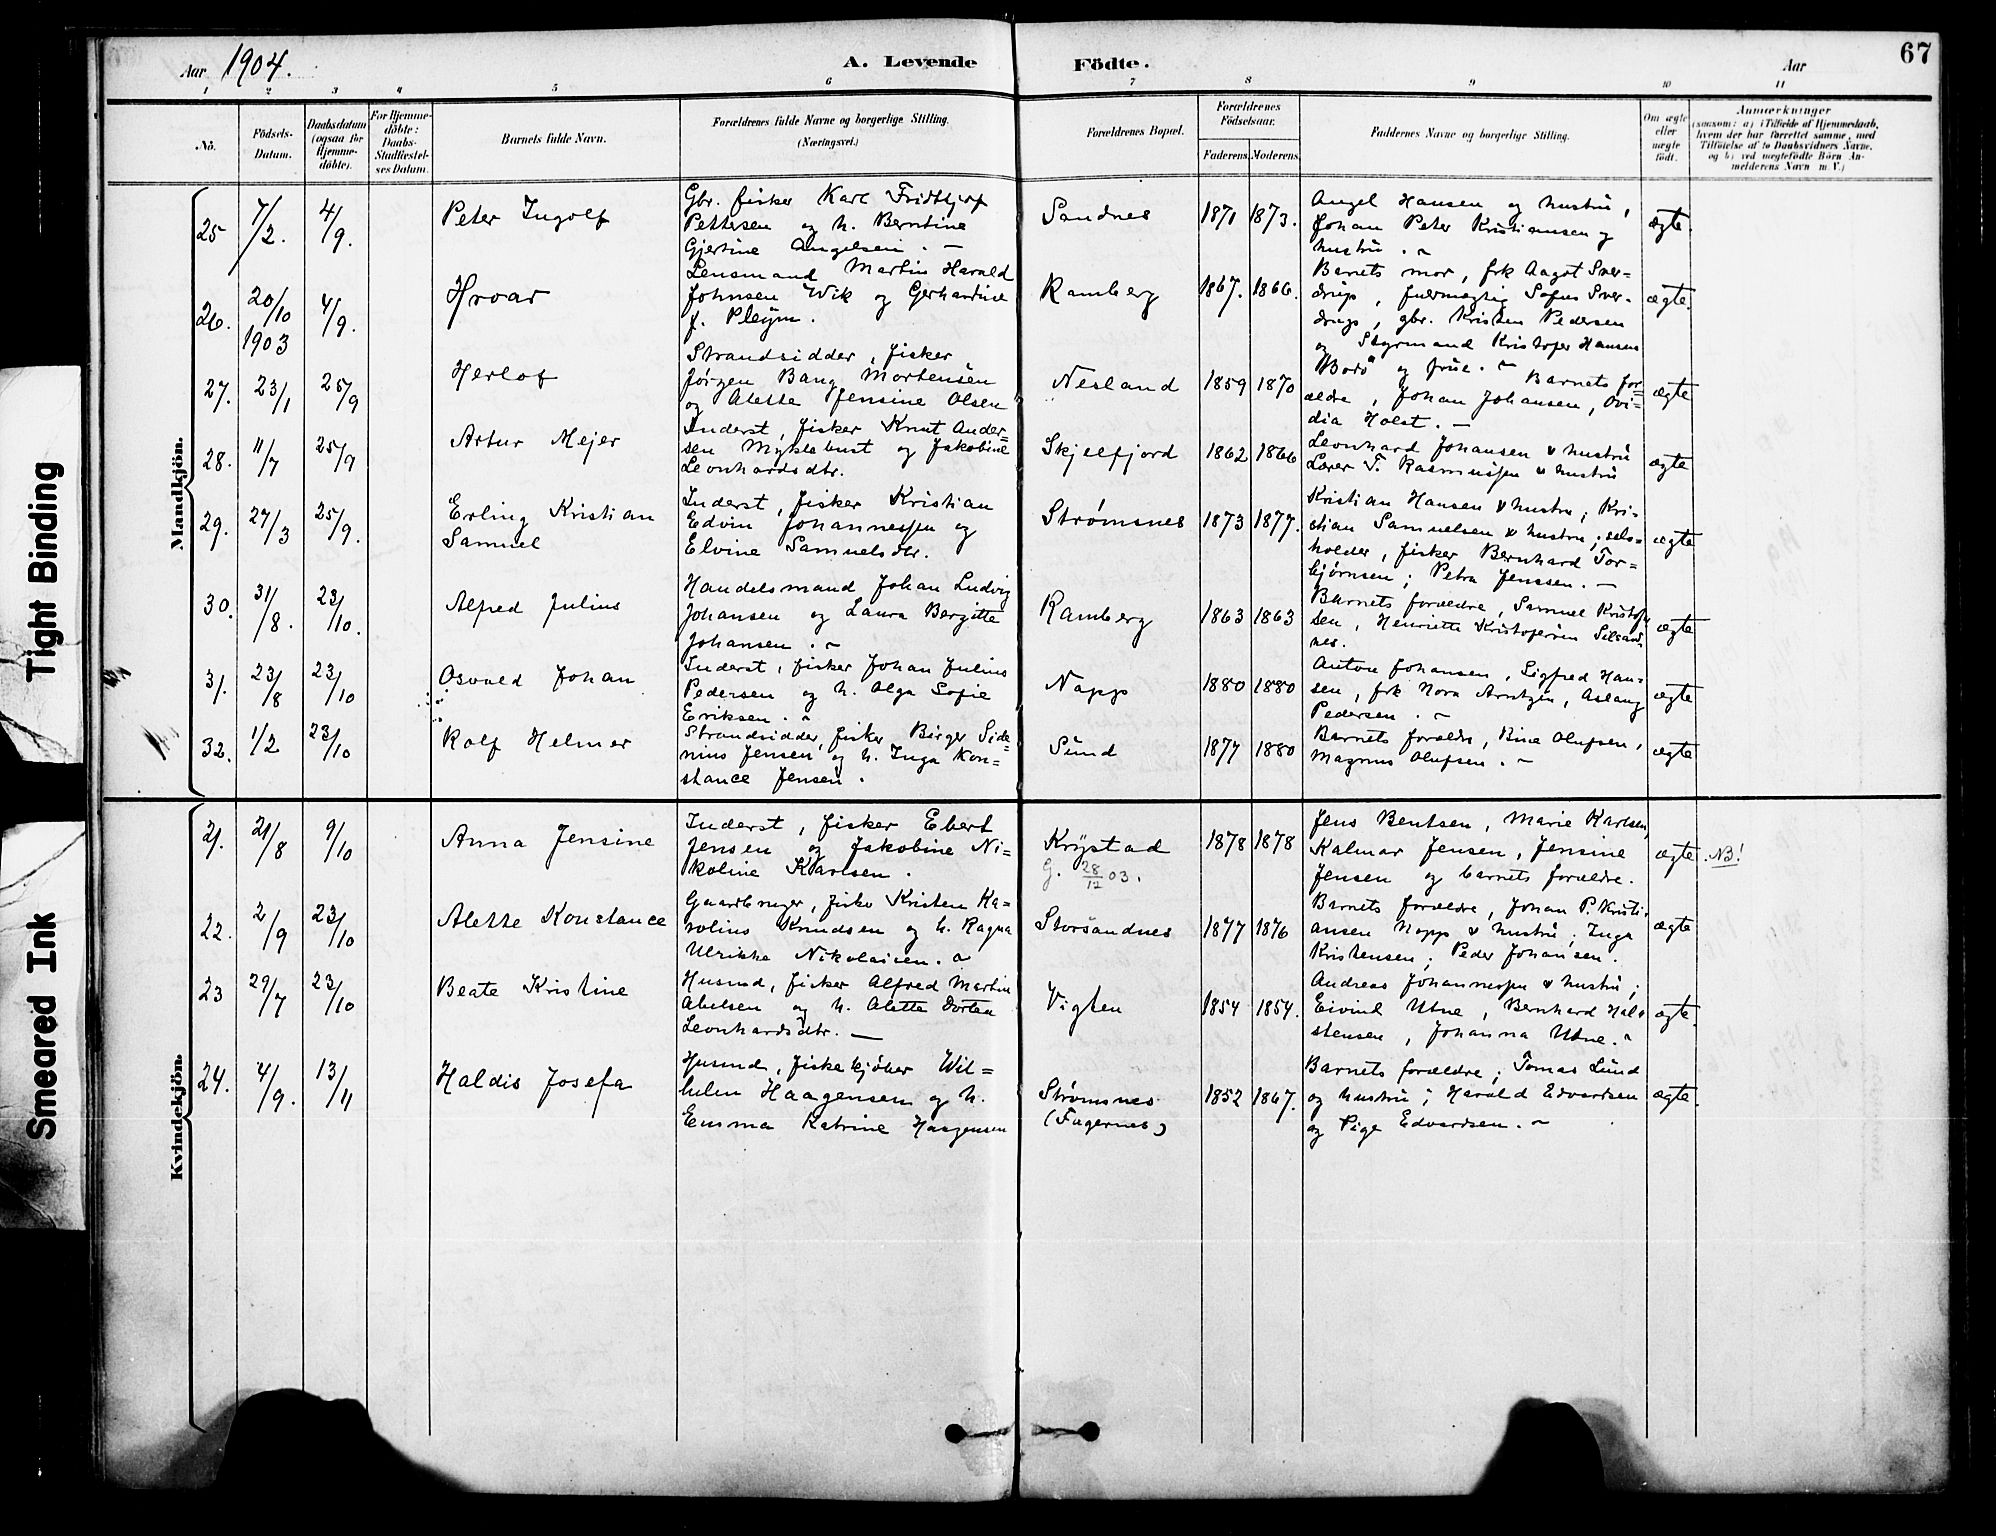 Tight Binding
Smeared Ink
67
Aar 1904.
A. Levende Födte.
Aar
1 2 3 4 5 6 7 8 9 10 11
No.
Födsels-
Datum.
Daabsdatum
(ogsaa for
Hjemme-
döbte).
For Hjemme-
döbte:
Daabs-
Stadfæstel-
ses Datum.
Barnets fulde Navn.
Forældrenes fulde Navne og borgerlige Stilling.
(Næringsvei.)
Forældrenes Bopæl.
Forældrenes
Födselsaar.
Faderens. Moderens.
Faddernes Navne og borgerlige Stilling.
Om ægte
eller
uægte
født.
Anmærkninger
(saasom: a) i Tilfælde af Hjemmedaab,
hvem der har forrettet samme, med
Tilføielse af to Daabsvidners Navne,
og b) ved uægtefødte Börn An-
melderens Navn m. V.)
Mandkjön.
25 7/2. 4/9. Peter Ingolf
Gbr. fisker Karl Fridtjof
Pettersen og h. Berntine
Gjertine Angelsen. —
Sandnes 1871 1873.
Angel Hansen og hustru,
Johan Peter Kristiansen og
hustru. ~
ægte.
26. 20/10 1903 4/9. Hroar
Lensmand Martin Harald
Johnsen Wik og Gerhardine
f. Pleym.
Ramberg 1867. 1866.
Barnets mor, frk Aagot Sver-
drup, fuldmægtig Sofus Sver-
drup, gbr. Kristen Pedersen
og Styrmand Kristofer Hansen
"Bodö" og frue. ~
ægte.
27. 23/1 25/9 Herlof
Strandsidder, fisker
Jørgen Bang Mortensen
og Alette Jensine Olsen
Nesland 1859 1870
Barnets for-
ældre, Johan Johansen, Ovi-
dia Holst. —
ægte
28. 11/7 25/9 Artur Mejer
Inderst, fisker Knut Ander-
sen Myklebust og Jakobine
Leonhardsdtr.
Skjelfjord 1862 1866
Leonhard Johansen & hustru
Lærer T. Rasmussen & hustru
ægte
29. 27/3 25/9. Erling Kristian
Samuel
Inderst, fisker Kristian
Edvin Johannessen og
Elvine Samuelsdtr.
Strømsnes 1873 1877.
Kristian Hansen & hustru, Kri-
stian Samuelsen & hustru; sels-
holder, fisker Bernhard Tor-
bjørnsen; Petra Jenssen. —
ægte
30. 31/8. 23/10. Alfred Julius
Handelsmand Johan Ludvig
Johansen og Laura Bergitte
Johansen. ~
Ramberg 1863 1863
Barnets forældre, Samuel Kristof-
sen, Henriette Kristofersen Selsand-
nes.
ægte
31. 23/8 23/10 Osvald Johan
Inderst, fisker Johan Julius
Pedersen og h. Olga Sofie
Eriksen. ~
Napp 1880 1880
Anton Johansen, Sigfred Han-
sen, frk Nora Arntzen, Aslaug
Pedersen. ~
ægte
32. 1/2 23/10 Rolf Helmer
Strandsidder, fisker Birger Side-
nius Jensen og h. Inga Kon-
stance Jensen.
Sund 1877 1880
Barnets forældre, Bine Olufsen,
Magnus Olufsen. ~
ægte
Kvindekjön.
21. 21/8 9/10 Anna Jensine
Inderst, fisker Ebert
Jensen og Jakobine Ni-
koline Karlsen.
Krystad 1878 1878
G. 28/12 03.
Jens Bentsen, Marie Karlsen,
Kalmar Jensen, Jensine
Jensen og barnets forældre.
ægte. NB!
22. 2/9 23/10 Alette Konstance
Gaardbruger, fisker Kristen Ka-
rolius Knudsen og h. Ragna
Ulrikke Nikolaisen. ~
Storsandnes 1877 1876
Barnets forældre, Johan P. Kristi-
ansen Napp & hustru; Inga
Kristensen; Peder Johansen.
ægte
23 29/7 23/10 Beate Kristine
Husmd, fisker Alfred Martin
Abelsen og h. Alette Dortea
Leonhardsdtr. —
Vigten 1854 1854.
Andreas Johannessen & hustru;
Eivind Utne, Bernhard Hal-
stensen, Johanna Utne. ~
ægte.
24. 4/9. 13/11 Haldis Josefa
Husmd, fiskekjøber Wil-
helm Haagensen og h.
Emma Katrine Haagensen
Strømsnes
(Fagernes)
1852 1867.
Barnets forældre; Tomas Lund
og hustru; Harald Edvardsen
og Pige Edvardsen. ~
ægte.